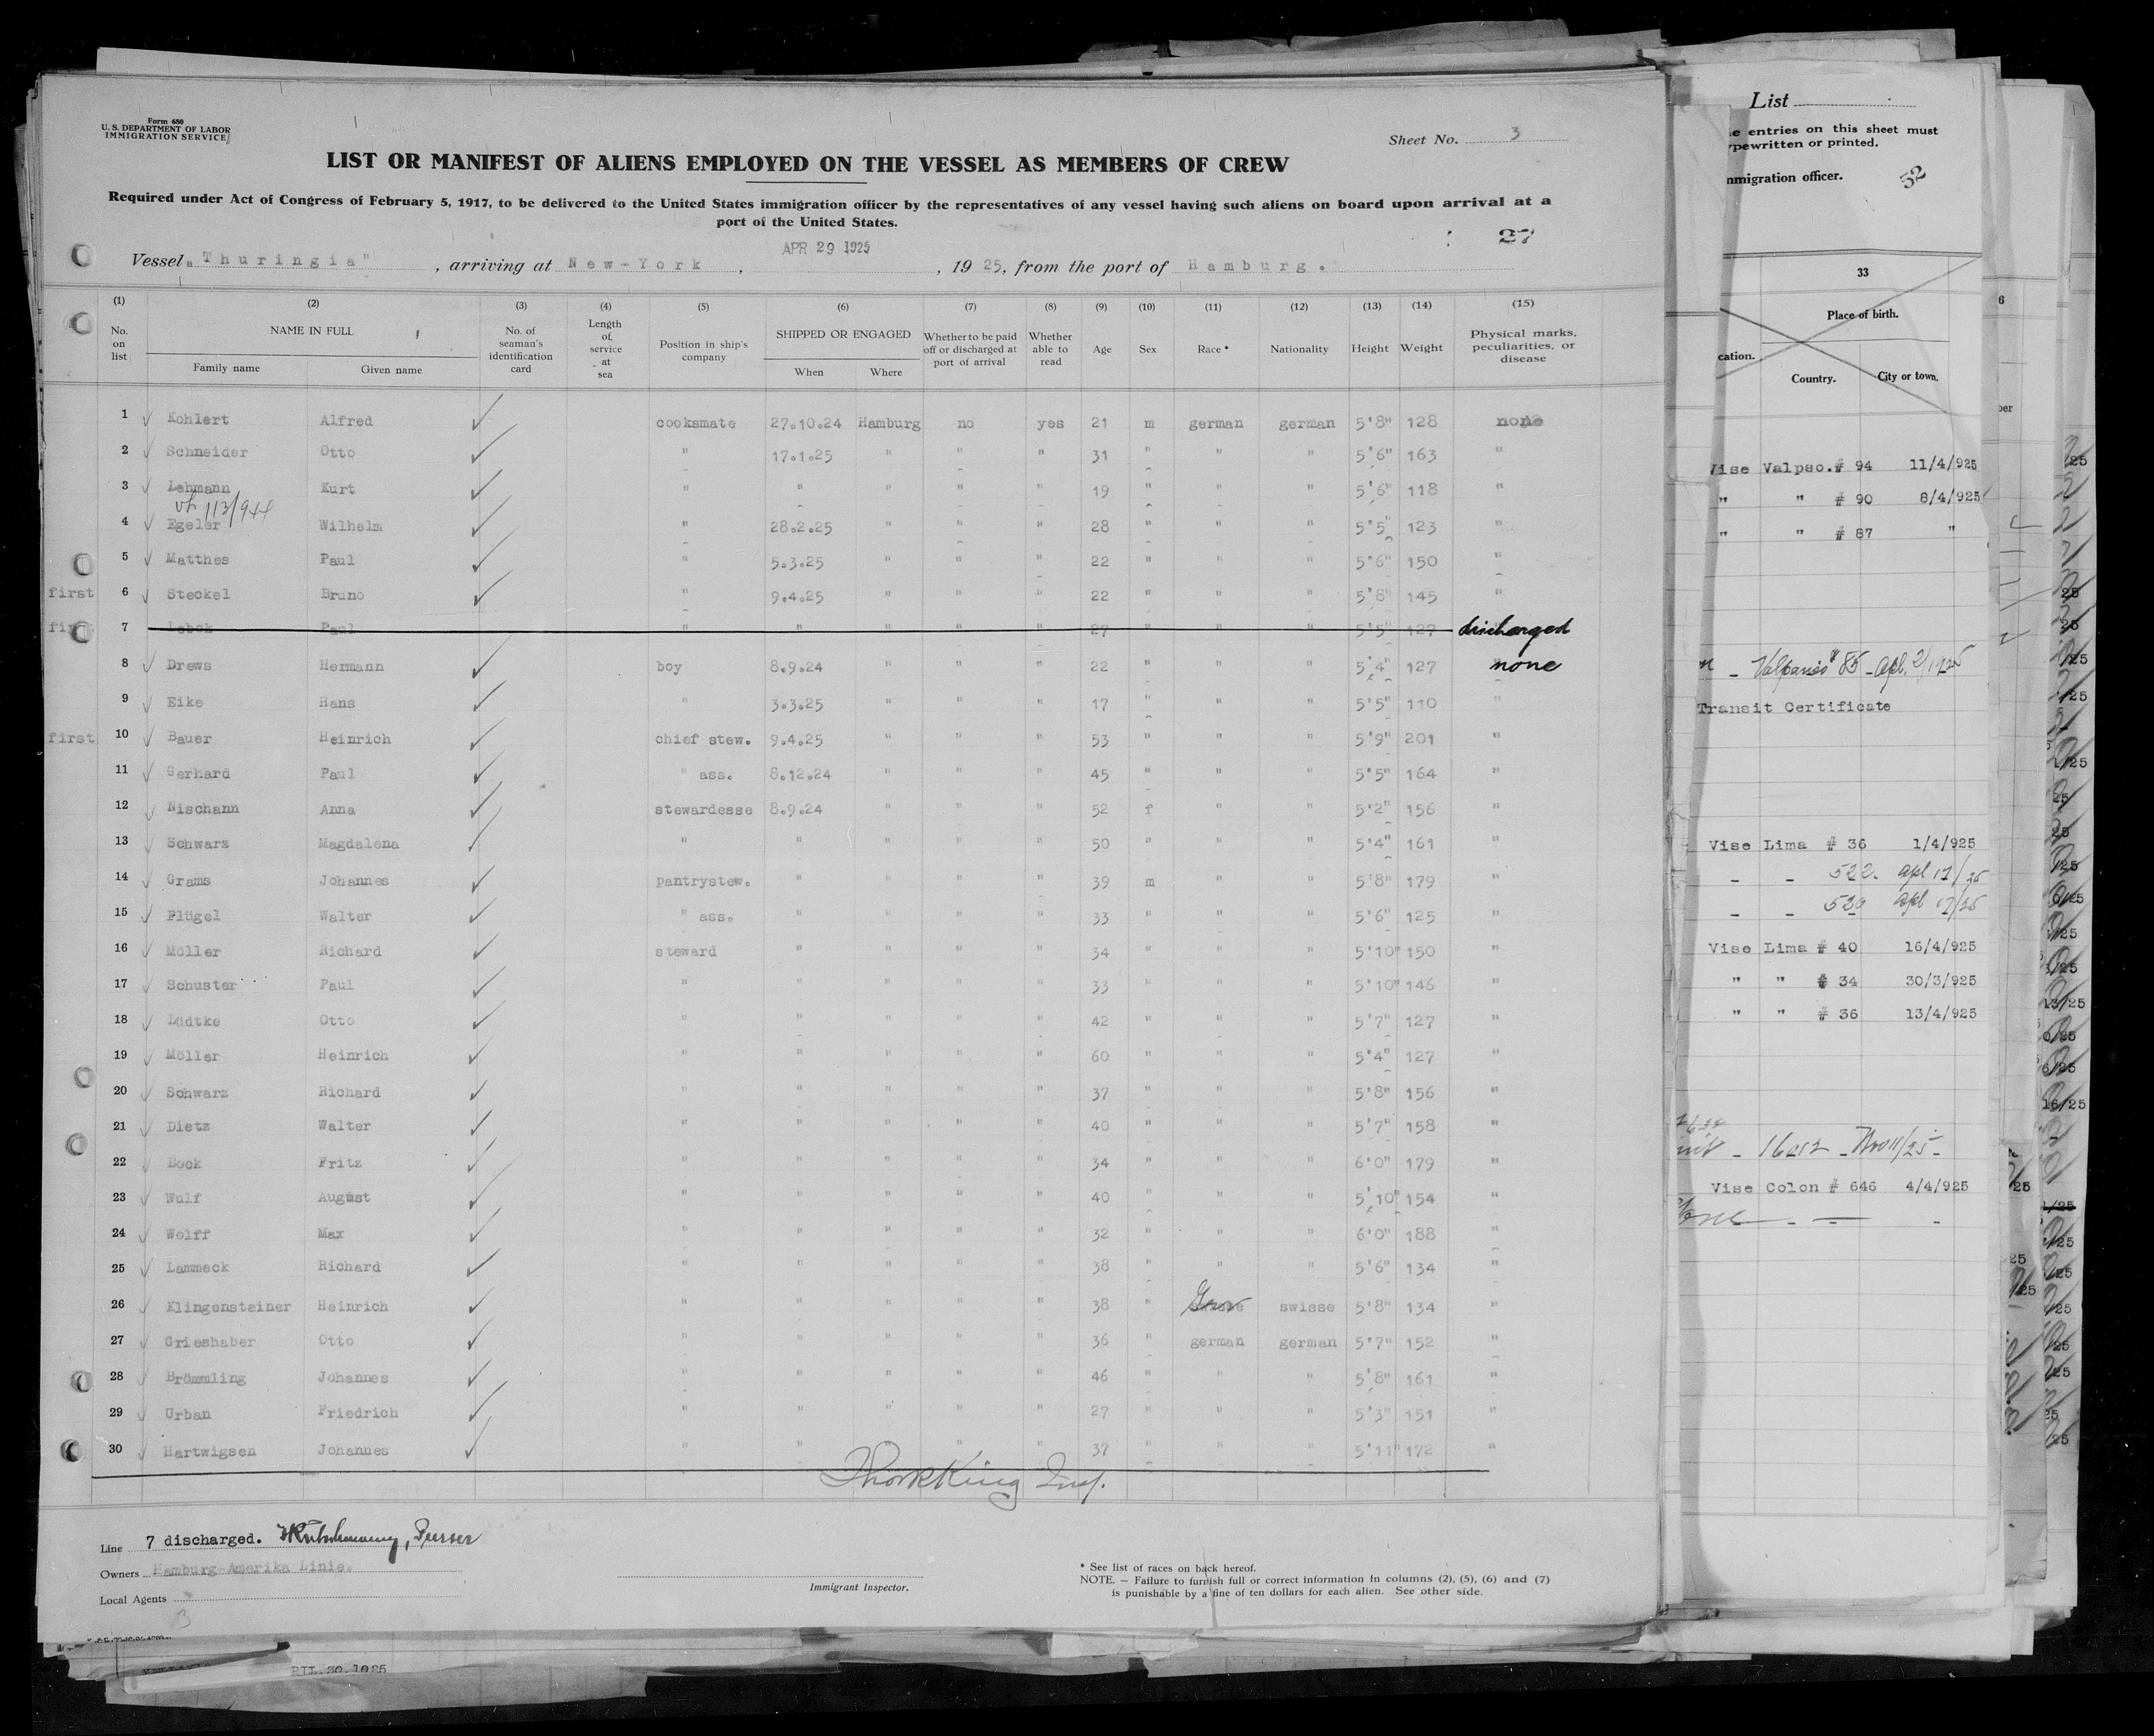 Form 680
U. S. DEPARTMENT OF LABOR
IMMIGRATION SERVICE
Sheet No. 3
LIST OR MANIFEST OF ALIENS EMPLOYED ON THE VESSEL AS MEMBERS OF CREW
Required under Act of Congress of February 5, 1917, to be delivered to the United States immigration officer by the representatives of any vessel having such aliens on board upon arrival at a
port of the United States.
27
APR 29 1925
Vessel „Thuringia" , arriving at New-York , , 19 25, from the port of Hamburg.
(1) (2) (3) (4) (5) (6) (7) (8) (9) (10) (11) (12) (13) (14) (15)
No. on list NAME IN FULL Family name Given name No. of seaman's identification card Length of service at sea Position in ship's company SHIPPED OR ENGAGED When Where Whether to be paid off or discharged at port of arrival Whether able to read Age Sex Race* Nationality Height Weight Physical marks, peculiarities, or disease
1 Kohlert Alfred cooksmate 27.10.24 Hamburg no yes 21 m german german 5'8" 128 none
2 Schneider Otto " 17.1.25 " " " 31 " " " 5'6" 163 "
3 Lehmann Kurt " " " " " 19 " " " 5'6" 118 "
113/944
4 Egeler Wilhelm " 28.2.25 " " " 28 " " " 5'5" 123 "
5 Matthes Paul " 5.3.25 " " " 22 " " " 5'6" 150 "
first 6 Steckel Bruno " 9.4.25 " " " 22 " " " 5'8" 145 "
first 7 Paul " " " " " 27 " " " 5'5" 127 discharged
8 Drews Hermann boy 8.9.24 " " " 22 " " " 5'4" 127 none
9 Eike Hans " 3.3.25 " " " 17 " " " 5'5" 110 "
first 10 Bauer Heinrich chief stew. 9.4.25 " " " 53 " " " 5'9" 201 "
11 Gerhard Paul " ass. 8.12.24 " " " 45 " " " 5'5" 164 "
12 Nischann Anna stewardesse 8.9.24 " " " 52 f " " 5'2" 156 "
13 Schwarz Magdalena " " " " " 50 " " " 5'4" 161 "
14 Grams Johannes pantrystew. " " " " 39 m " " 5'8" 179 "
15 Flügel Walter " ass. " " " " 33 " " " 5'6" 125 "
16 Möller Richard steward " " " " 34 " " " 5'10" 150 "
17 Schuster Paul " " " " " 33 " " " 5'10" 146 "
18 Lüdtke Otto " " " " " 42 " " " 5'7" 127 "
19 Möller Heinrich " " " " " 60 " " " 5'4" 127 "
20 Schwarz Richard " " " " " 37 " " " 5'8" 156 "
21 Dietz Walter " " " " " 40 " " " 5'7" 158 "
22 Bock Fritz " " " " " 34 " " " 6'0" 179 "
23 Wulf August " " " " " 40 " " " 5'10" 154 "
24 Wolff Max " " " " " 32 " " " 6'0" 188 "
25 Lammeck Richard " " " " " 38 " " " 5'6" 134 "
26 Klingensteiner Heinrich " " " " " 38 " Ger swisse 5'8" 134 "
27 Grieshaber Otto " " " " " 36 " german german 5'7" 152 "
28 Brömmling Johannes " " " " " 46 " " " 5'8" 161 "
29 Urban Friedrich " " " " " 27 " " " 5'3" 151 "
30 Hartwigsen Johannes " " " " " 37 " " " 5'11" 172 "
King Insp.
Line 7 discharged. Purser
Owners Hamburg-Amerika Linie.
Local Agents
3
Immigrant Inspector.
* See list of races on back hereof.
NOTE. — Failure to furnish full or correct information in columns (2), (5), (6) and (7)
is punishable by a fine of ten dollars for each alien. See other side.
30.1925
List
entries on this sheet must
typewritten or printed.
immigration officer.
32
33
Place of birth.
Country. City or town.
Vise Valpso.# 94 11/4/925
" " # 90 8/4/925
" " # 87 "
Transit Certificate
Vise Lima # 36 1/4/925
- - 522. apl 17/25
- - apl 17/25
Vise Lima # 40 16/4/925
" " # 34 30/3/925
" " # 36 13/4/925
Vise Colon # 646 4/4/925